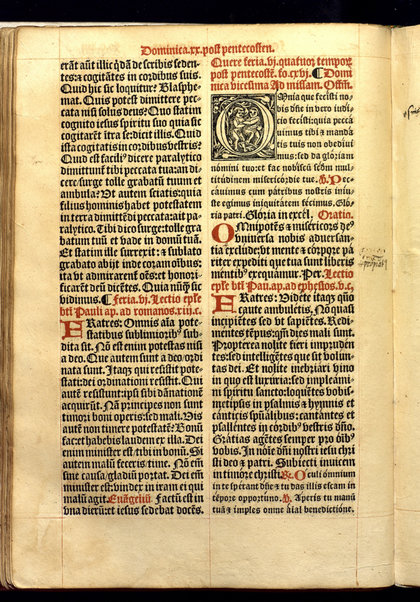 Dominica.xx.post pentecosten.
erāt aūt illic q̄dā de scribis seden-
tes: ⁊ cogitātes in cordibus suis.
Quid hic sic loquitur? Blasphe-
mat. Quis potest dimittere pec-
cata nisi solus deus? Quo statim
cognito iesus spiritu suo quia sic
cogitarēt itra se: dicit illis. Quid
ista cogitatis in cordibus vestris?
Quid est facili⁹ dicere paralytico
dimittunt̄ tibi peccata tua: an di-
cere: surge tolle grabatū tuum et
ambula? Ut autem sciatis: quia
filius hominis habet potestatem
in terra dimittēdi peccata: ait pa-
ralytico. Tibi dico surge: tolle gra-
batum tuū et vade in domū tuā.
Et statim ille surrexit: ⁊ sublato
grabato abijt inde coram oībus:
ita vt admirarent̄ oēs: et honori-
ficarent deū dicentes. Quia nūq̄ sic
vidimus. ¶ Feria.vj. Lectio ep̄le
bti Pauli ap. ad romanos.xiij.c.
FRatres: Omnis aīa pote-
statibus sublimiorib⁹ sub-
dita sit. Nō est enim potestas nisi
a deo. Que autem sunt a deo: ordi
nata sunt. Itaq̄ qui resistit pote-
stati: dei ordinationi resistit. Qui
aūt resistunt: ipsi sibi dānationē
acquirūt. Nā principes non sunt
timori boni operis: sed mali. Uis
autē non timere potestatē? Bonū
fac: et habebis laudem ex illa. Dei
enim minister est tibi in bonū. Si
autem malū feceris: time. Nō em̄
sine causa gladiū portat. Dei em̄
minister est: vindex in iram ei qui
malū agit. Euāgeliū. Factū est in
vna dierū: et iesus sedebat docēs.
Quere feria.vj. quatuor temporꝝ
post pentecostē. fo.cxvj. ¶ Domi
nica vicesima Ad missam. Offm̄.
OMnia que fecisti no-
bis dn̄e in vero iudi-
cio fecisti: quia pecca
uimus tibi ⁊ manda
tis tuis non obediui
mus: sed da gloriam
nomini tuo: et fac nobiscū scd̄m mul-
titudinem misericordie tue. Ps. Pec-
cauimus cum patribus nostris iniu-
ste egimus iniquitātem fecimus. Glo-
ria patri. Gloria in excel. Oratio.
OMnipotēs ⁊ misericors de⁹
vniuersa nobis aduersan-
tia exclude: vt mente ⁊ corpore pa
riter expediti que tua sunt liberis
mentib⁹ exequamur. Per. Lectio
ep̄le bti Pau. ap. ad ephesios.v.c.
FRatres: Uidete itaq̄ quō
caute ambuletis. Nō quasi
insipiētes sed vt sapiētes. Redi-
mentes tēpus: qm̄ dies mali sunt.
Propterea nolite fieri impruden-
tes: sed intelligētes que sit volun-
tas dei. Et nolite inebriari vino
in quo est luxuria: sed implemini
spiritu sancto: loquētes vobis-
metipsis in psalmis ⁊ hymnis et
canticis spūalibus: cantantes et
psallentes in cordib⁹ vestris dn̄o.
Gratias agētes semper pro oīb⁹
vobis. In noīe dn̄i nostri iesu chri
sti deo ⁊ patri. Subiecti inuicem
in timore christi. Gr. Oculi omnium
in te sperant dn̄e ⁊ tu das illis escam in
tēpore opportuno. ℣. Aperis tu manū
tuā et imples omne aīal benedictione.